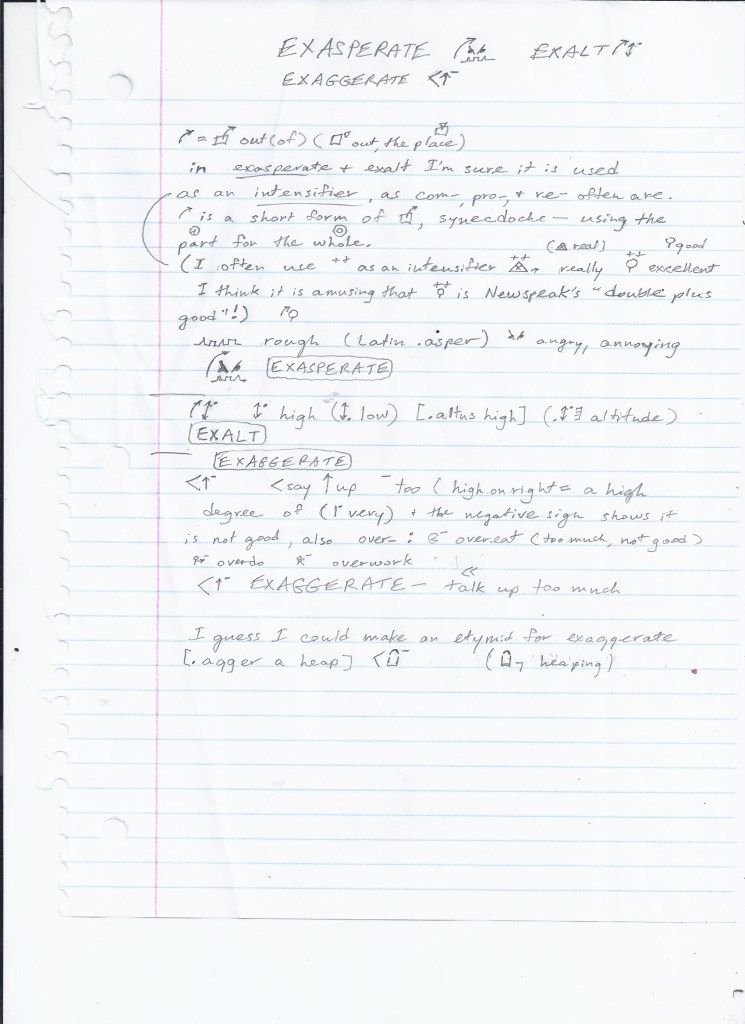 EXASPERATE EXALT
EXAGGERATE <↑⁻
↗ = out (of) ( out, the place)
in exasperate + exalt I'm sure it is used
as an intensifier, as com-, pro-, + re- often are.
↗ is a short form of , synecdoche — using the
part for the whole.
(▲ real) ♀ good
(I often use ++ as an intensifier really excellent
I think it is amusing that is Newspeak's "double plus
good"!)
rough (Latin .asper) angry, annoying
EXASPERATE
high ( low) [.altus high] ( altitude)
EXALT
EXAGGERATE
<↑⁻ < say ↑ up ⁻ too (high on right = a high
degree of ( very) + the negative sign shows it
is not good, also over- : overeat (too much, not good)
overdo overwork
<<
<↑⁻ EXAGGERATE — talk up too much
I guess I could make an etymid for exaggerate
[.agger a heap] ( heaping)